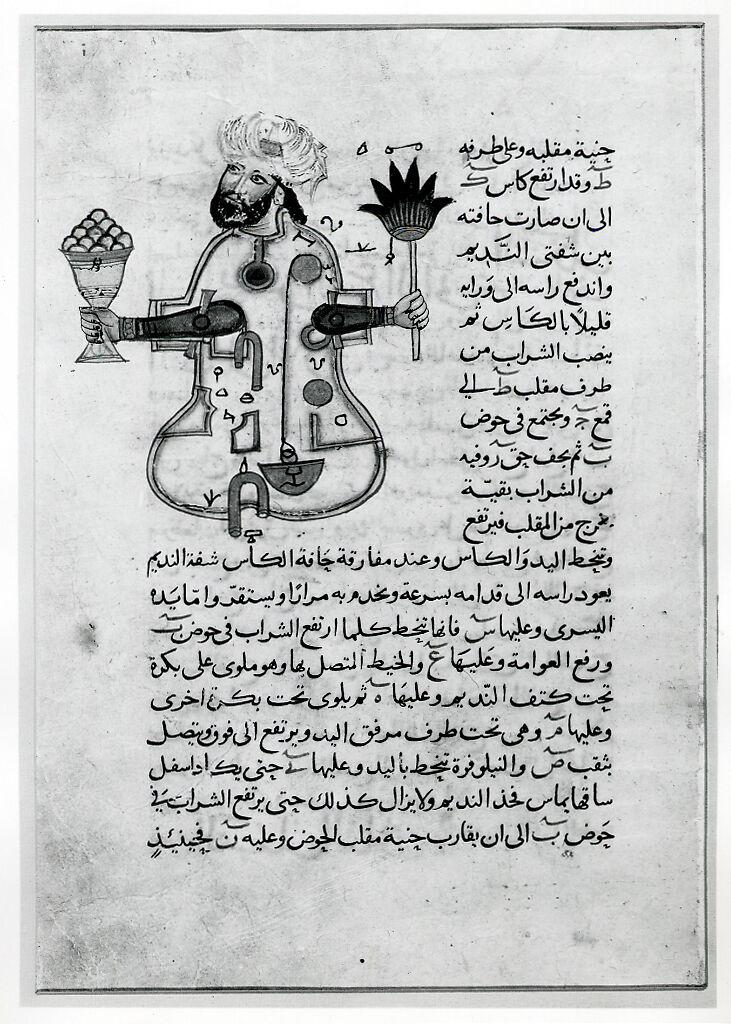 حنية مقلبه وعلى طرفه
ط وقد ارتفع كاس ك
الى ان صارت حافته
بين شفتي النديم
واندفع راسه الى ورايه
قليلا بالكاس ثم
ينصب الشراب من
طرف مقلب ط الى
قمع ج ويجتمع في حوض
ب ثم يجف حق ر وفيه
من الشراب بقية
تخرج من المقلب فيرتفع
وتنحط اليد والكاس وعند مفارقة حافة الكاس شفة النديم
يعود راسه الى قدامه بسرعة ويخدم به مرارا ويستقر واما يده
اليسرى وعليها س فانها تنحط كلما ارتفع الشراب في حوض ب
ورفع العوامة وعليها ع والخيط المتصل بها وهو ملوى على بكرة
تحت كتف النديم وعليها ه ثم يلوى تحت بكرة اخرى
وعليها م وهى تحت طرف مرفق اليد ويرتفع الى فوق ويتصل
بثقب ص والنيلوفرة تنحط باليد وعليها حتى يكاد اسفل
ساقها يماس فخذ النديم ولا يزال كذلك حتى يرتفع الشراب في
حوض ب الى ان يقارب حنية مقلب الحوض وعليه ن فحينئذ